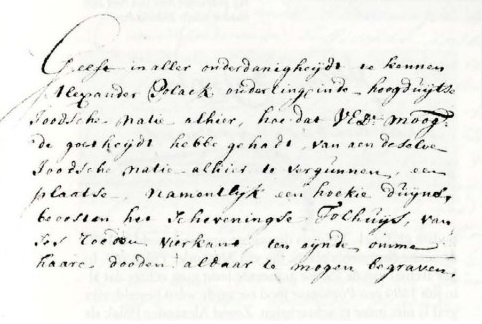 Geeft in aller onderdanigheijdt te kennen
Alexander Polack onderling inde hoogduijtse
Joodsche natie alhier, hoe dat UEd. Moog.
de goetheijdt hebbe gehadt, van aen deselve
Joodsche natie alhier te vergunnen, een
plaatse, namentlijk een hoekie duijns,
beoosten het Scheveningse Tolhuijs, van
ses roeden vierkant ten eynde omme
haare dooden aldaar te mogen begraven.